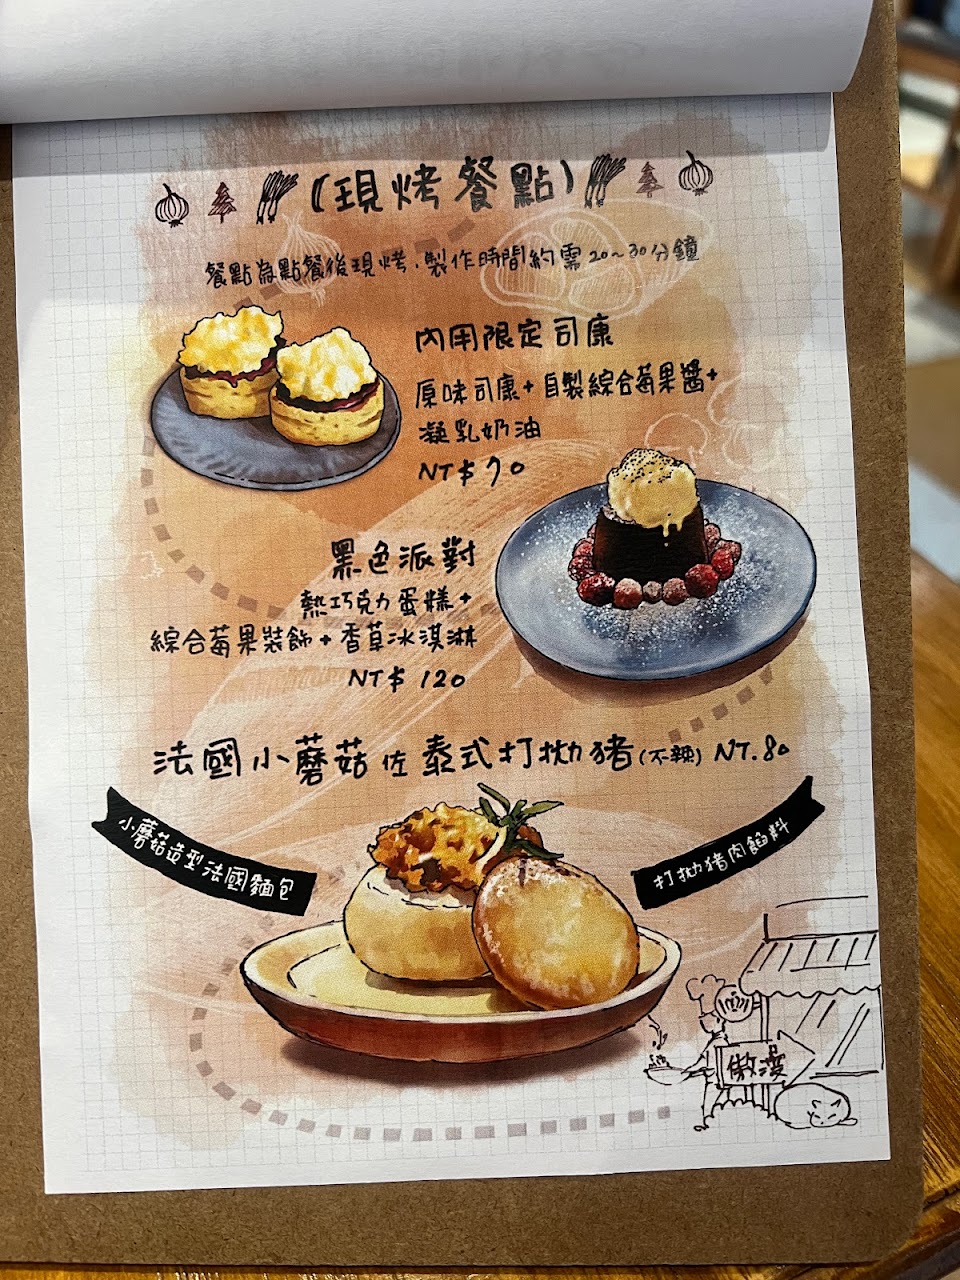 (現烤餐點)
餐點為點餐後現烤.製作時間約需20~30分鐘
內用限定司康
原味司康+自製綜合莓果醬+
凝乳奶油
NT$70
黑色派對
熱巧克力蛋糕+
綜合莓果裝飾+香草冰淇淋
NT$120
法國小蘑菇佐泰式打拋豬(不辣) NT.80
小蘑菇造型法國麵包
打拋豬肉餡料